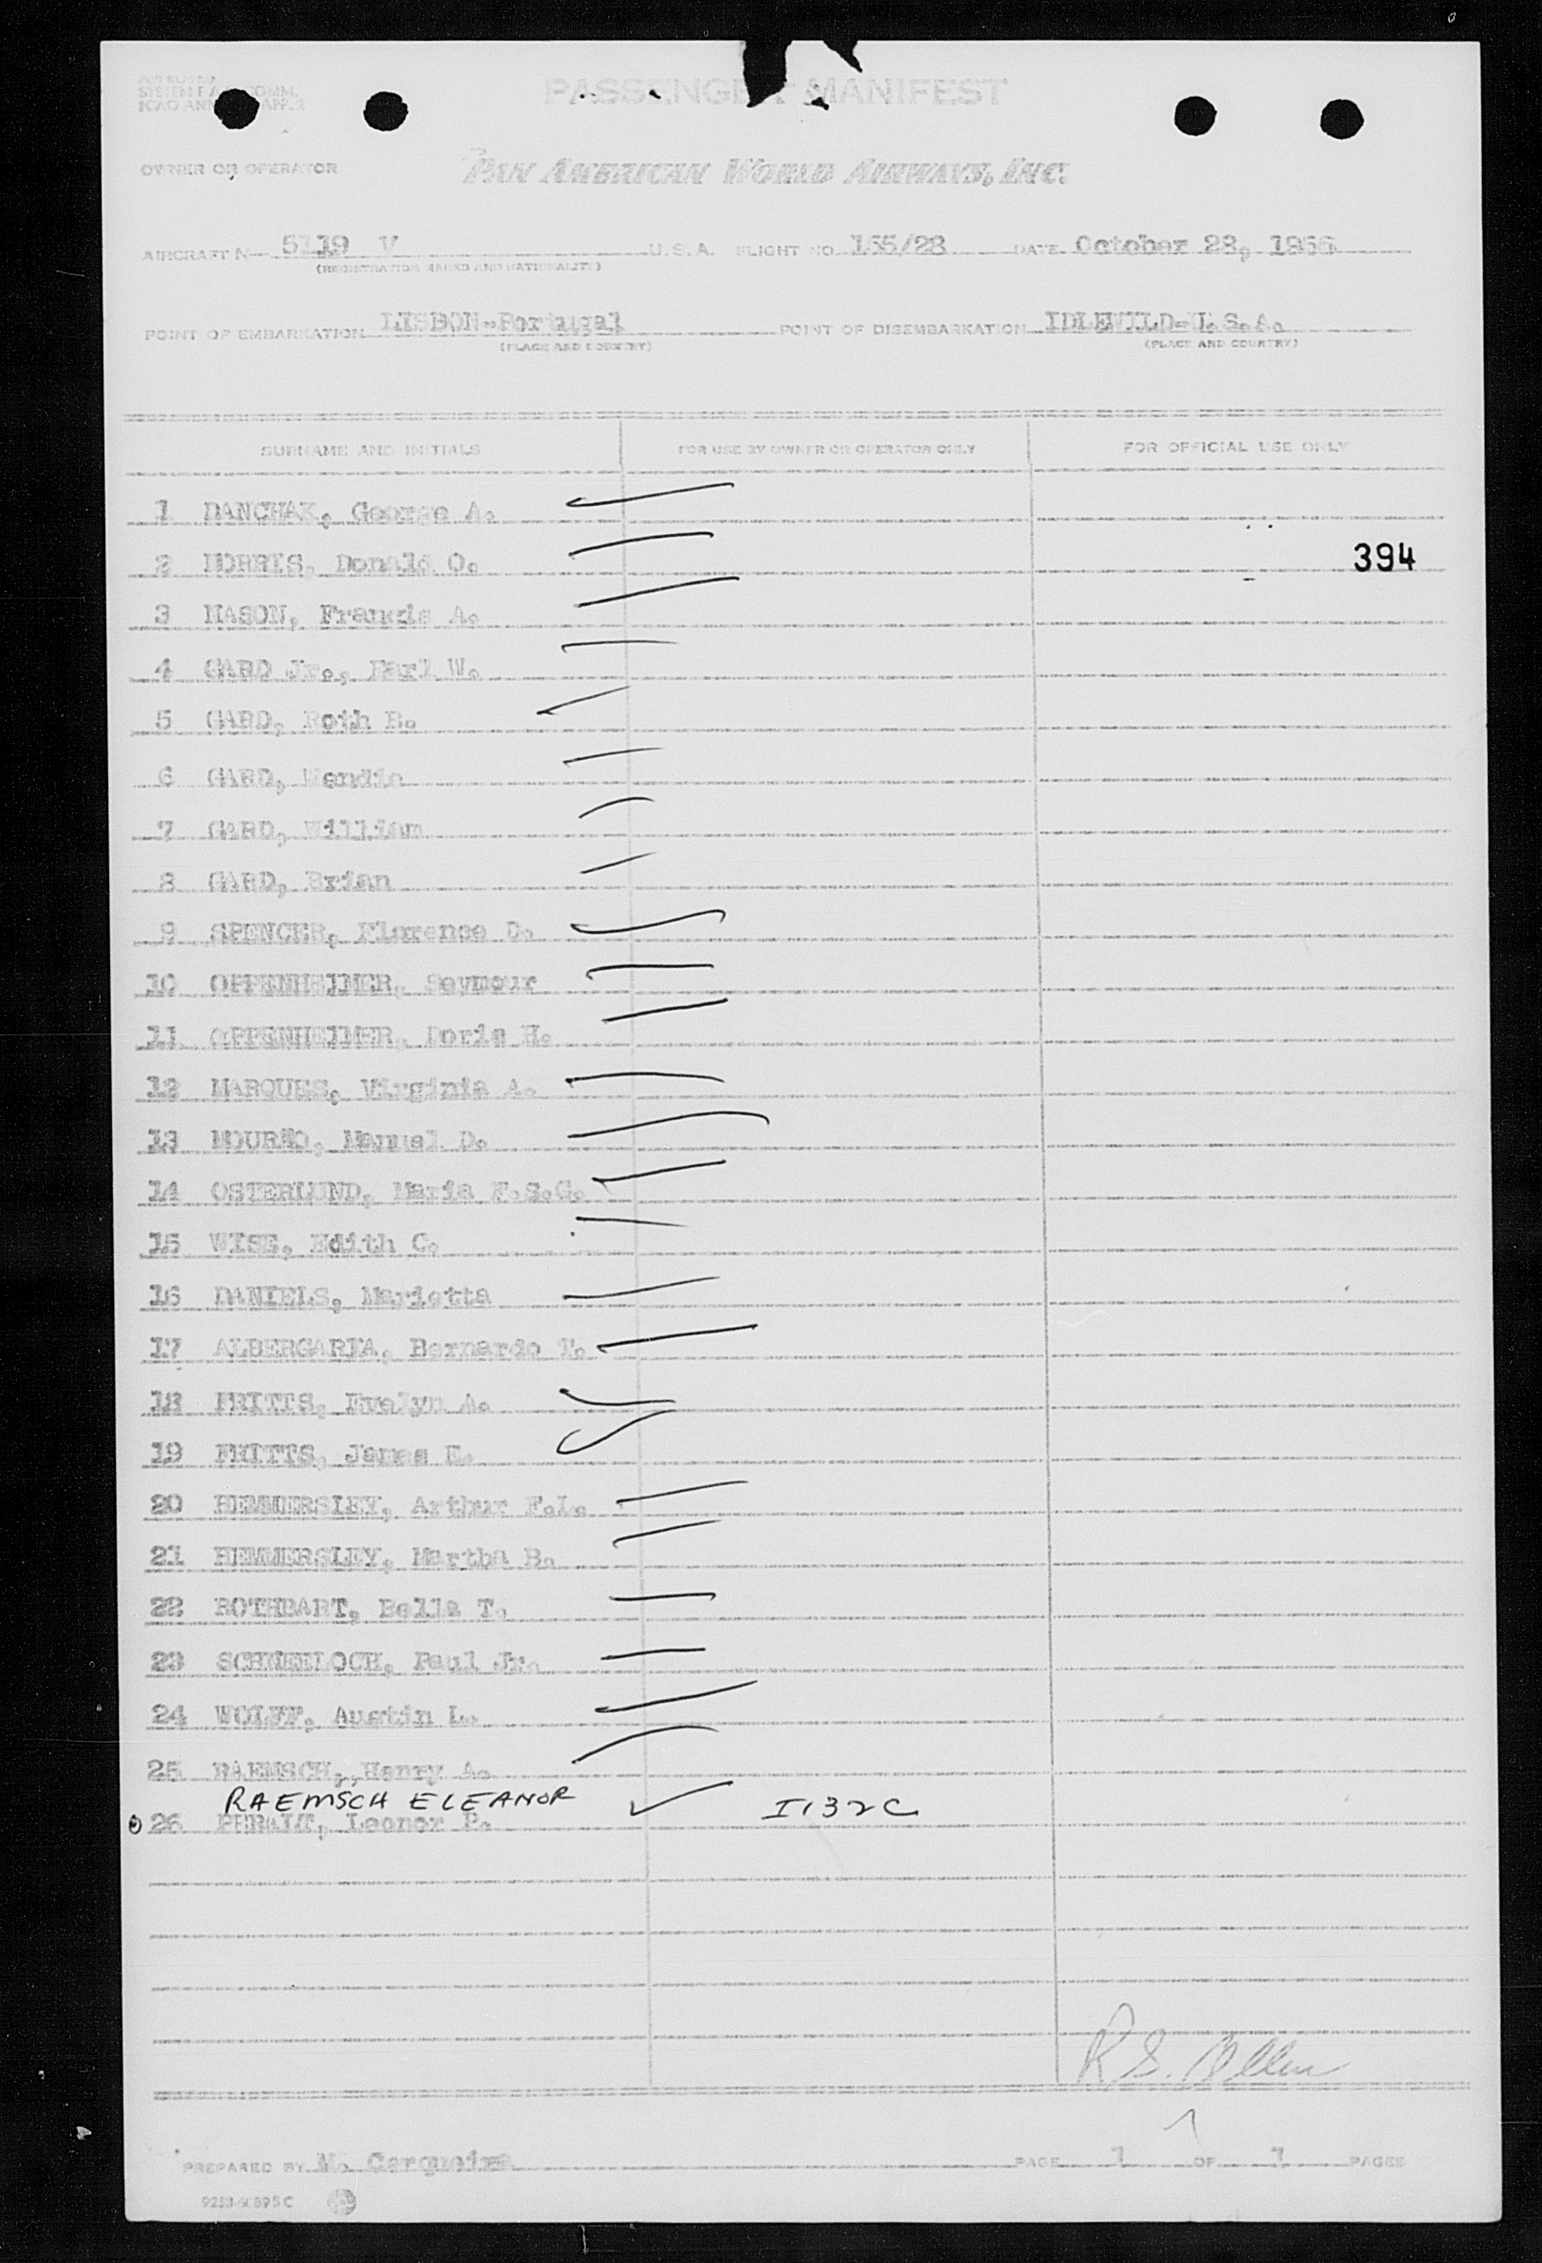 PASSENGER MANIFEST
OWNER OR OPERATOR PAN AMERICAN WORLD AIRWAYS, INC.
AIRCRAFT N- 5119 V U.S.A. FLIGHT NO. 155/28 DATE October 28, 1956
(REGISTRATION MARKS AND NATIONALITY)
POINT OF EMBARKATION LISBON-Portugal POINT OF DISEMBARKATION IDLEWILD-U.S.A.
(PLACE AND COUNTRY) (PLACE AND COUNTRY)
SURNAME AND INITIALS FOR USE BY OWNER OR OPERATOR ONLY FOR OFFICIAL USE ONLY
1 DANCHAK, George A.
2 NORRIS, Donald O. 394
3 MASON, Francis A.
4 GARD Jr., Earl W.
5 GARD, Roth B.
6 GARD, Wendie
7 GARD, William
8 GARD, Brian
9 SPENCER, Florence D.
10 OPPENHEIMER, Seymour
11 OPPENHEIMER, Doris H.
12 MARQUES, Virginia A.
13 MOURÃO, Manuel D.
14 OSTERLUND, Maria F.S.G.
15 WISE, Edith C.
16 DANIELS, Marietta
17 ALBERGARIA, Bernardo T.
18 FRITTS, Evelyn A.
19 FRITTS, James E.
20 HEMMERSLEY, Arthur F.L.
21 HEMMERSLEY, Martha B.
22 ROTHBART, Bella T.
23 SCHNEELOCH, Paul Jr.
24 WOLFF, Austin L.
25 RAEMSCH, Henry A.
RAEMSCH ELEANOR ✓ I132C
26 Leonor P.
R S. Allen
PREPARED BY M. Cerqueira PAGE 1 OF 1 PAGES